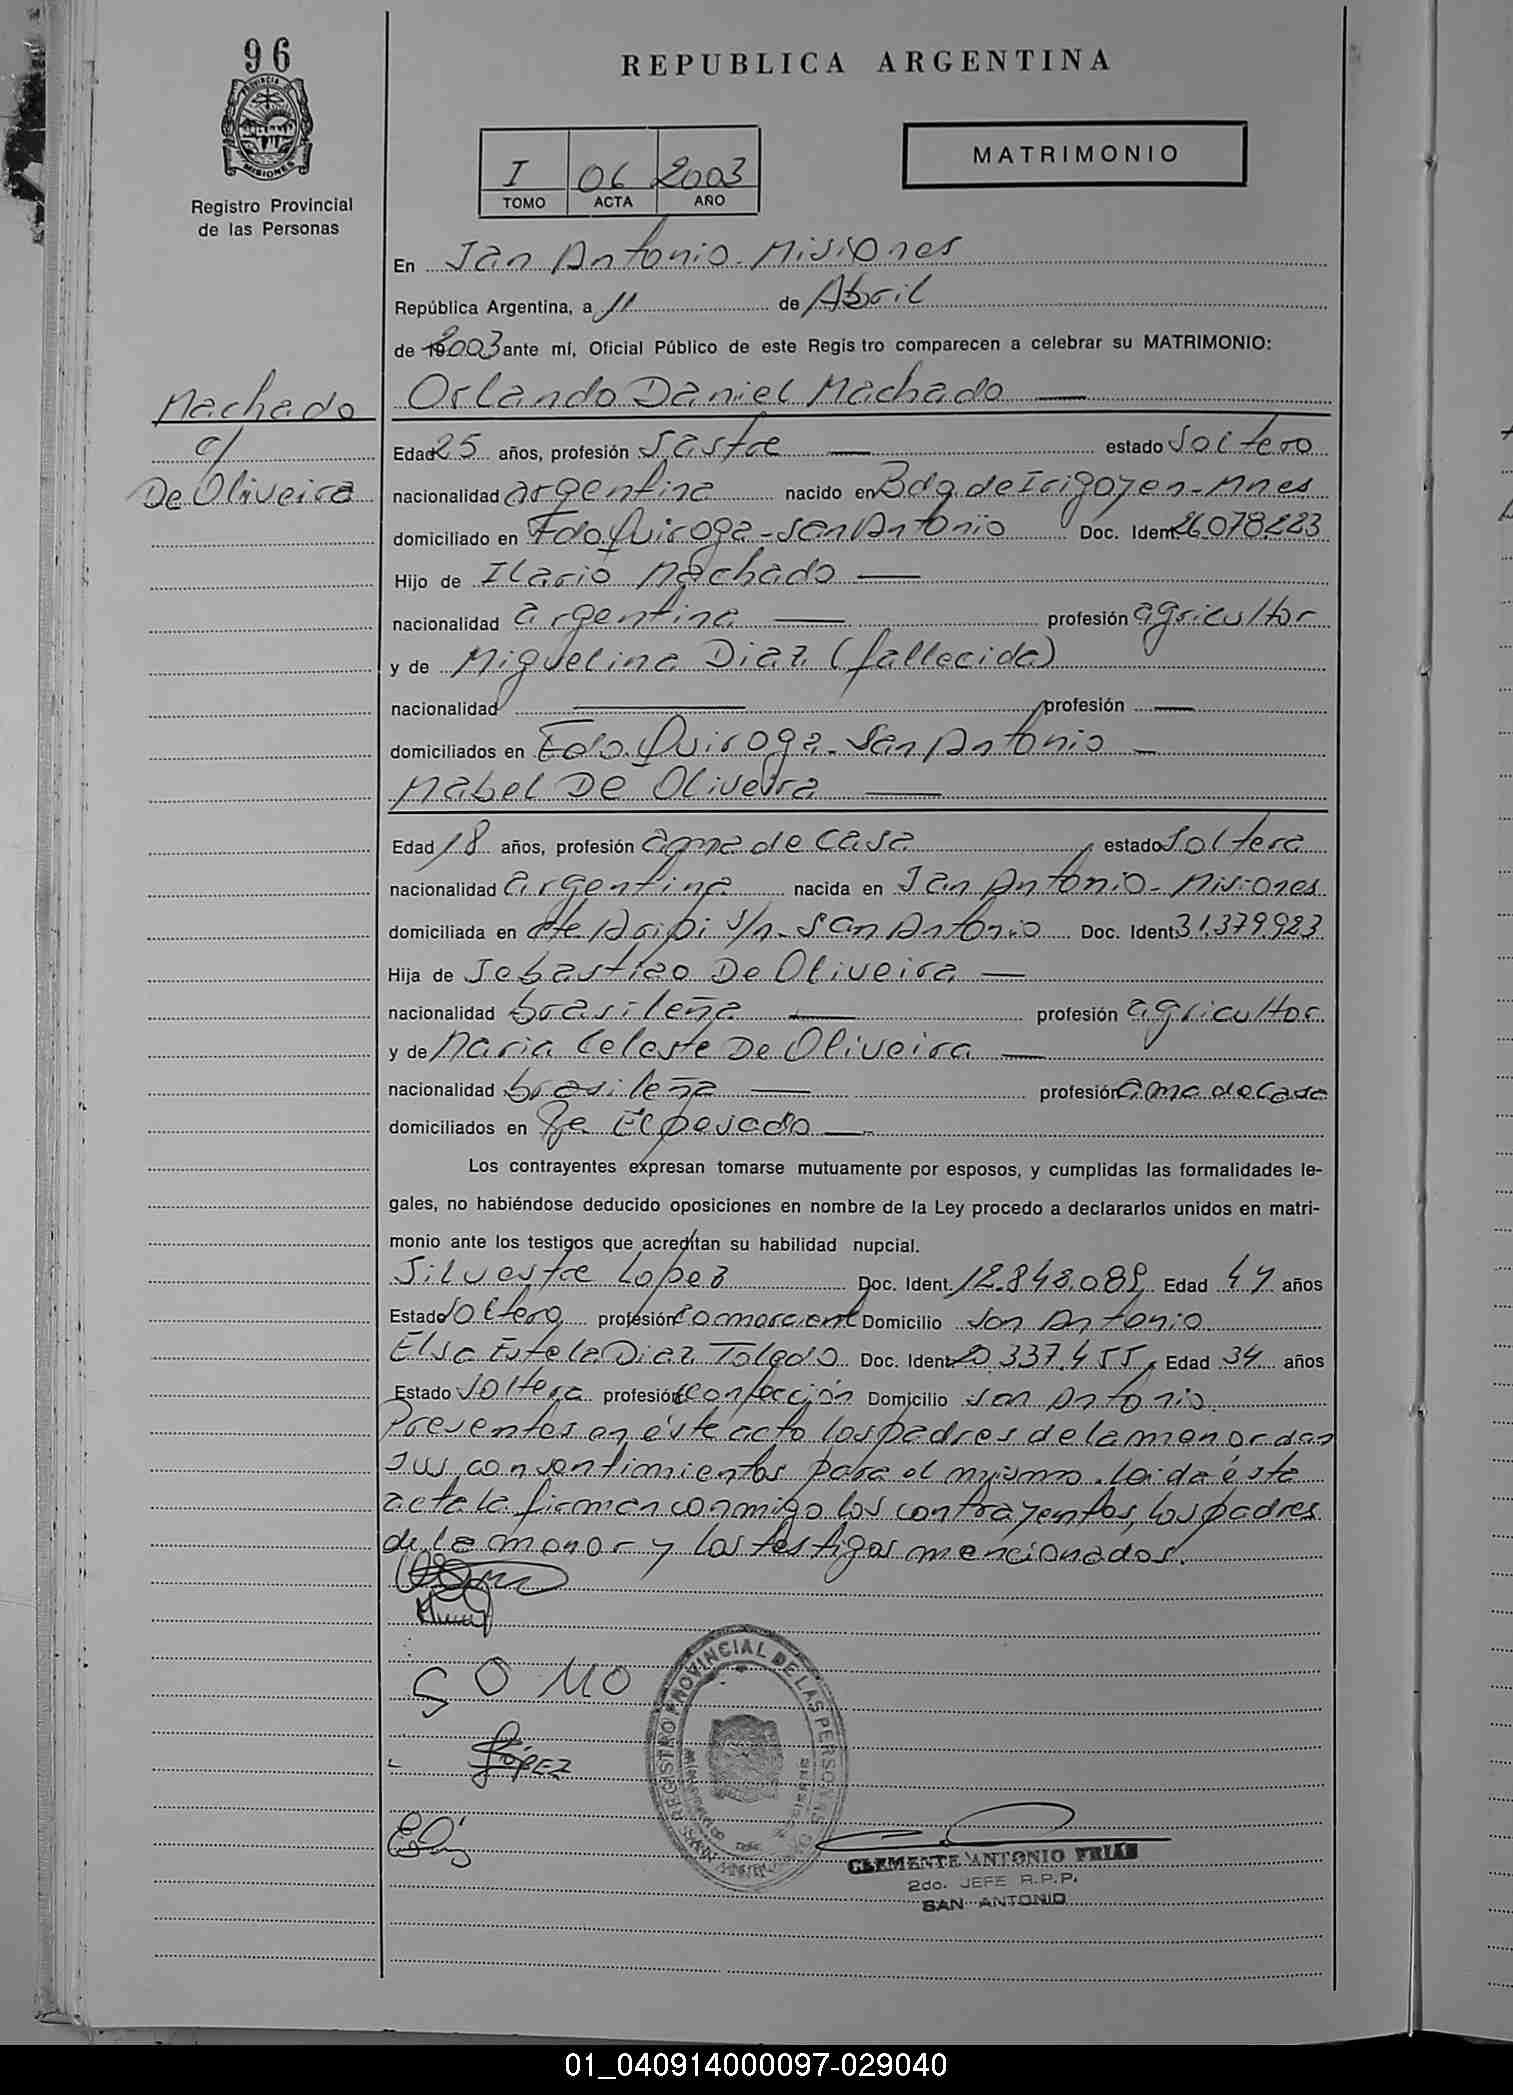 96
REPUBLICA ARGENTINA
PROVINCIA DE MISIONES
Registro Provincial
de las Personas
I 06 2003
TOMO ACTA AÑO
MATRIMONIO
En San Antonio - Misiones
República Argentina, a 11 de Abril
de 2003 ante mí, Oficial Público de este Regis tro comparecen a celebrar su MATRIMONIO:
Machado
c/
De Oliveira
Orlando Daniel Machado
Edad 25 años, profesión Sastre estado Soltero
nacionalidad argentina nacido en Bdo. de Irigoyen - Mnes
domiciliado en Fdo. Quiroga - San Antonio Doc. Ident. 26.078.223
Hijo de Ilario Machado
nacionalidad argentina profesión agricultor
y de Miguelina Diaz (fallecida)
nacionalidad profesión
domiciliados en Fdo. Quiroga - San Antonio
Mabel De Oliveira
Edad 18 años, profesión ama de casa estado Soltera
nacionalidad argentina nacida en San Antonio - Misiones
domiciliada en S/n - San Antonio Doc. Ident. 31.379.923
Hija de Sebastiao De Oliveira
nacionalidad brasileña profesión agricultor
y de Maria Celeste De Oliveira
nacionalidad brasileña profesión ama de casa
domiciliados en El pesado
Los contrayentes expresan tomarse mutuamente por esposos, y cumplidas las formalidades le-
gales, no habiéndose deducido oposiciones en nombre de la Ley procedo a declararlos unidos en matri-
monio ante los testigos que acreditan su habilidad nupcial.
Silvestre Lopez Doc. Ident. 12.848.089 Edad años
Estado Soltero profesión Domicilio San Antonio
Elsa Estela Diaz Toledo Doc. Ident. 20.337.455 Edad 34 años
Estado Soltera profesión confección Domicilio San Antonio.
Presentes en éste acto los padres de la menor dan
sus consentimientos para el mismo. Leida ésta
acta la firman conmigo los contrayentes, los padres
de la menor y los testigos mencionados.
SOMO
LÓPEZ
REGISTRO PROVINCIAL DE LAS PERSONAS
CLEMENTE ANTONIO FRIAS
2do. JEFE R.P.P.
SAN ANTONIO
01_040914000097-029040